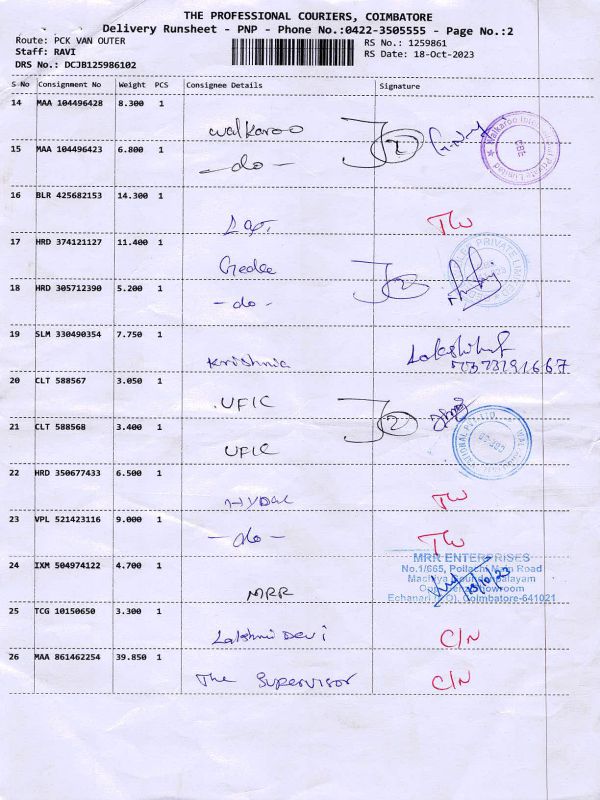 THE PROFESSIONAL COURIERS, COIMBATORE
Delivery Runsheet - PNP - Phone No.:0422-3505555 - Page No.:2
Route: PCK VAN OUTER
RS No.: 1259861
Staff: RAVI
RS Date: 18-Oct-2023
DRS No.: DCJB125986102
S No Consignment No Weight PCS Consignee Details Signature
14 MAA 104496428 8.300 1
walkaroo
2
15 MAA 104496423 6.800 1
- do -
16 BLR 425682153 14.300 1
17 HRD 374121127 11.400 1
Gedee
2
18 HRD 305712390 5.200 1
- do -
19 SLM 330490354 7.750 1
Krishnia
20 CLT 588567 3.050 1
UFIC
2
21 CLT 588568 3.400 1
UFIC
22 HRD 350677433 6.500 1
23 VPL 521423116 9.000 1
- do -
24 IXM 504974122 4.700 1
MRR
MRR ENTERPRISES
No.1/665, Pollachi Main Road
Echanari Coimbatore-641021
25 TCG 10150650 3.300 1
Lakshmi Devi
C/N
26 MAA 861462254 39.850 1
The Supervisor
C/N